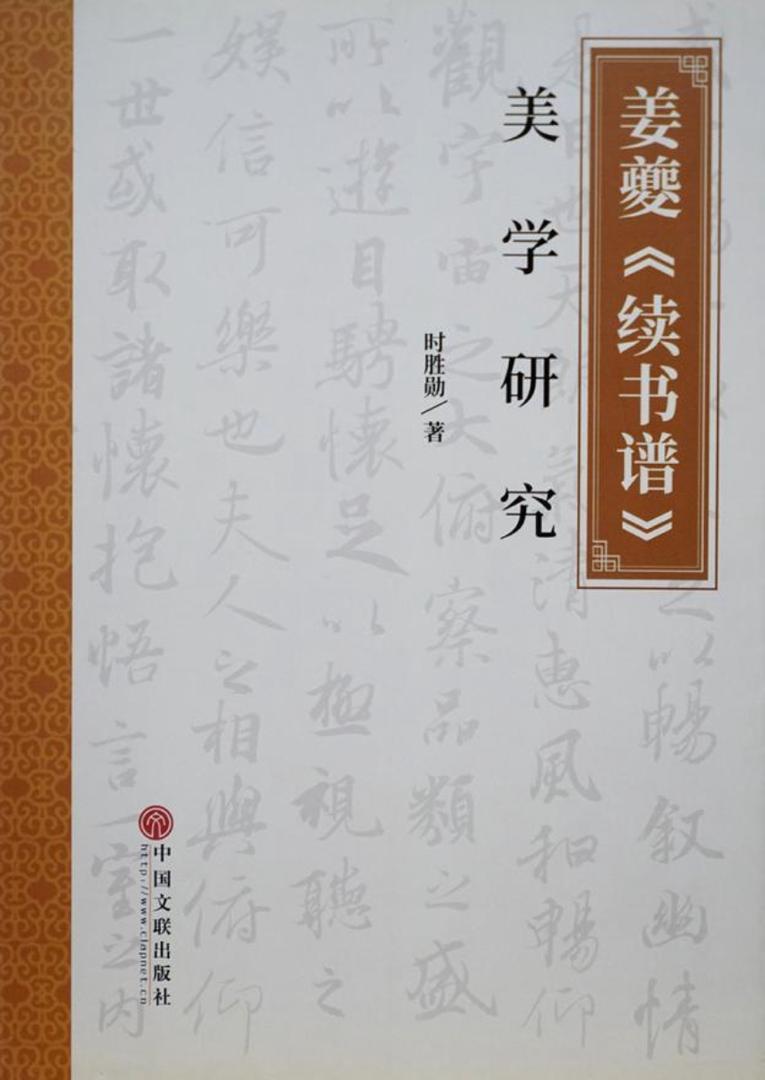 姜夔《续书谱》
美学研究
时胜勋/著
中国文联出版社
http://www.clapnet.cn
之以暢叙幽情
是日也天朗氣清惠風和暢仰
觀宇宙之大俯察品類之盛
所以遊目騁懷足以極視聽之
娱信可樂也夫人之相與俯仰
一世或取諸懷抱悟言一室之内